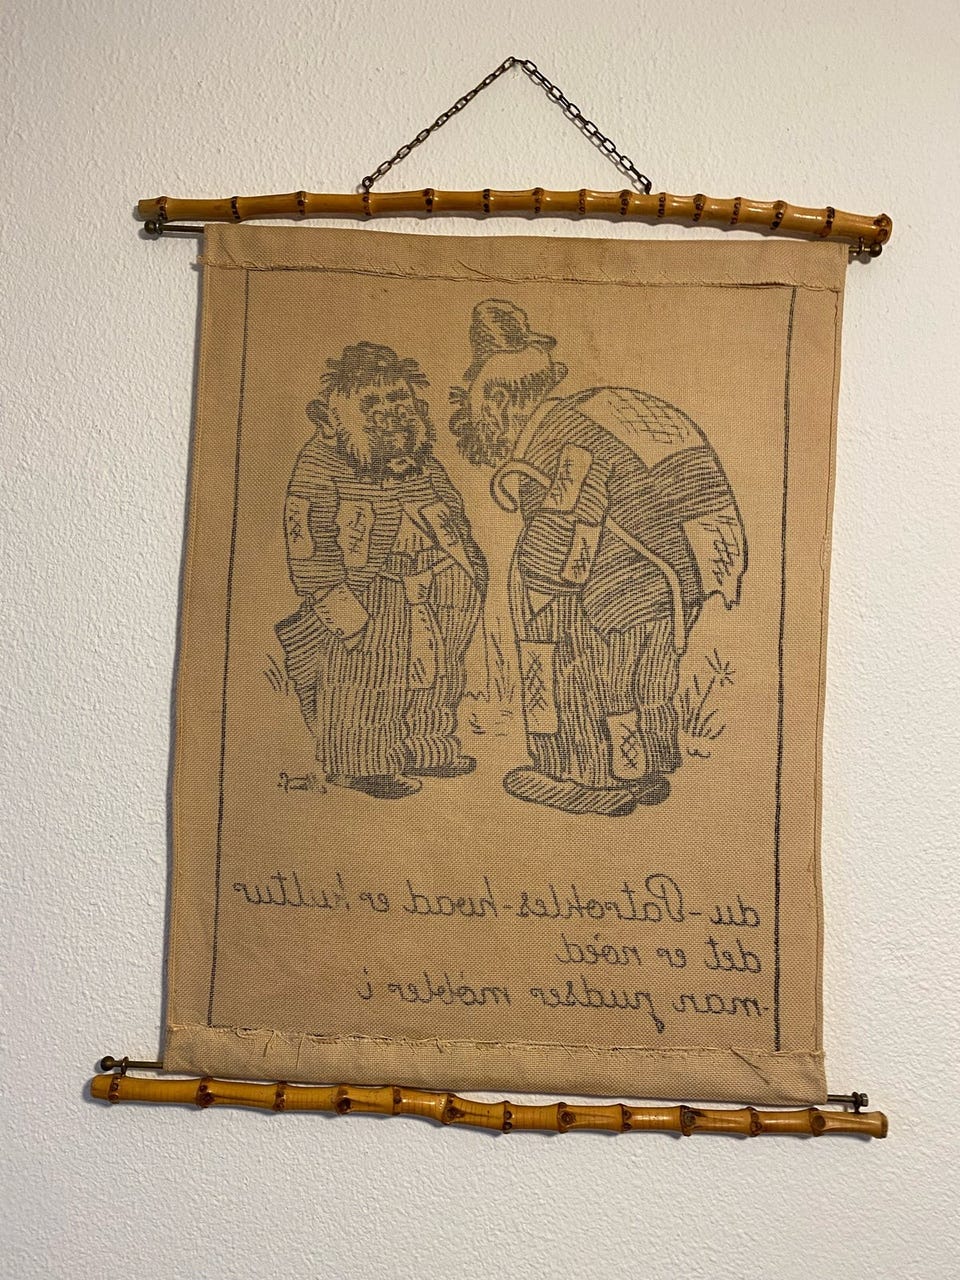 du-Patrokles-hvad er kultur
det er noéd
-man pudser möbler i